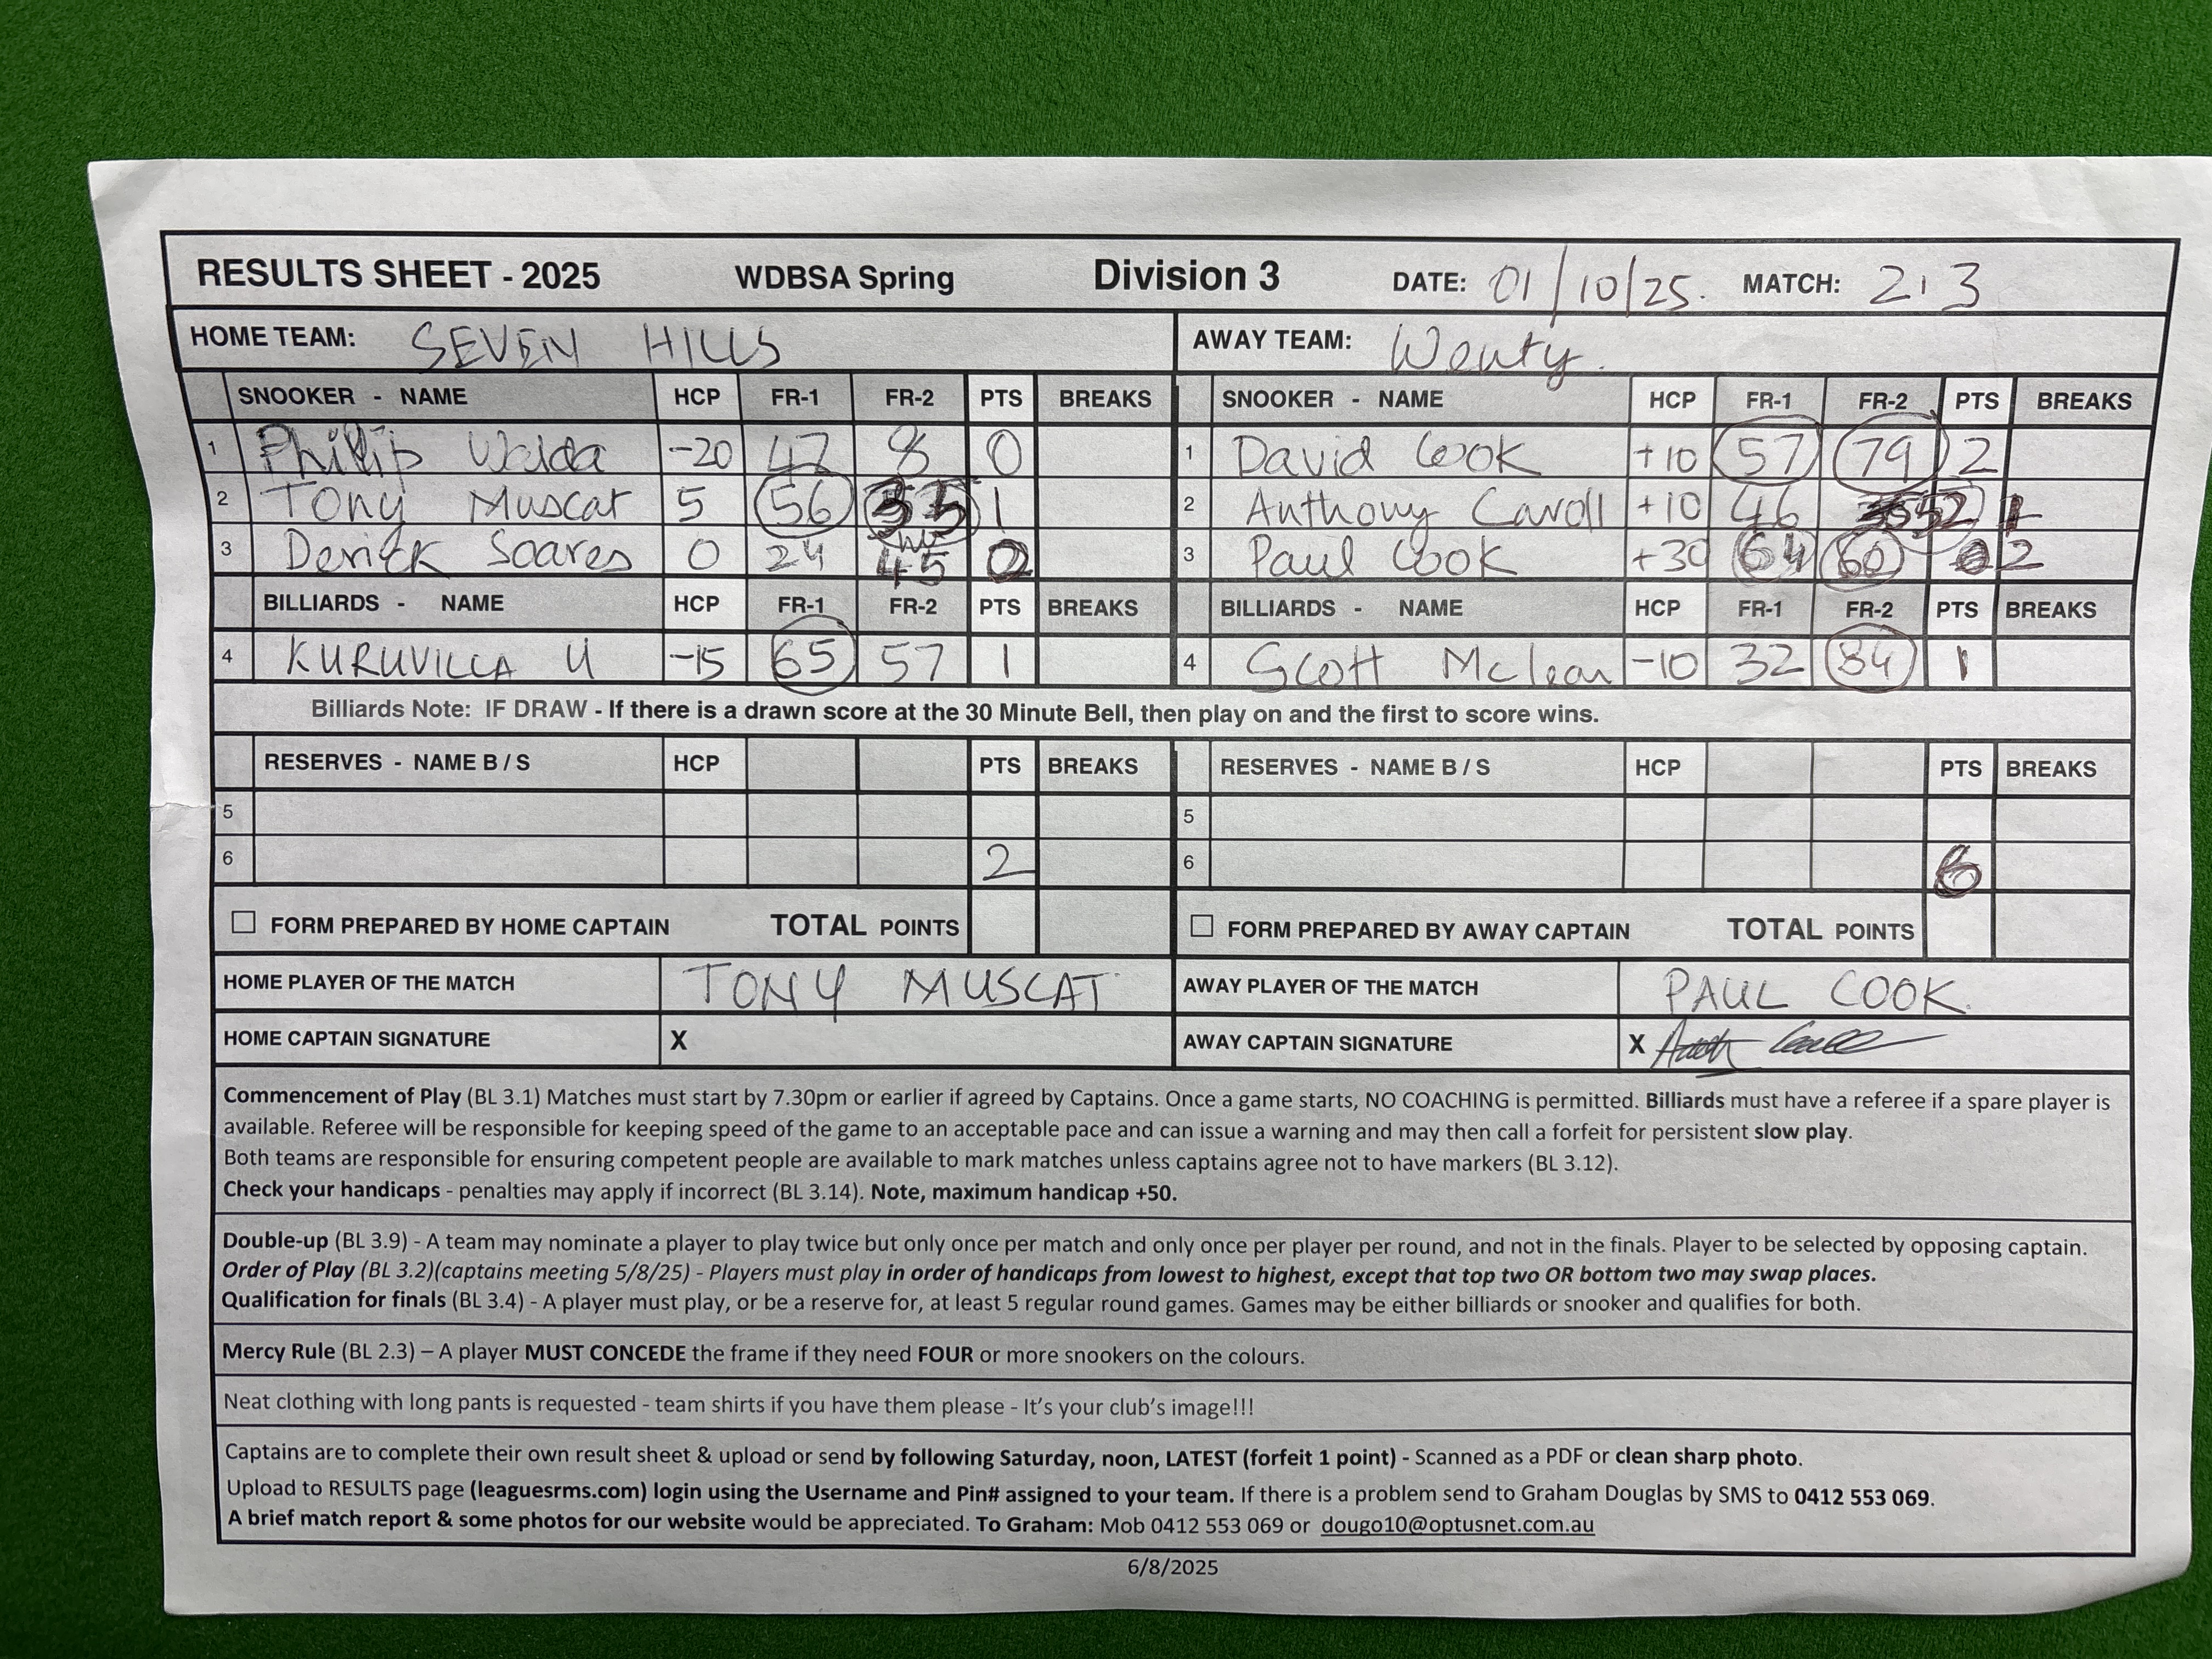 RESULTS SHEET - 2025 WDBSA Spring Division 3 DATE: 01/10/25. MATCH: 2.3
HOME TEAM: SEVEN HILLS AWAY TEAM: Wenty.
SNOOKER - NAME HCP FR-1 FR-2 PTS BREAKS SNOOKER - NAME HCP FR-1 FR-2 PTS BREAKS
1 Philip Walda -20 47 8 0 1 David Cook +10 57 79 2
2 Tony Muscat 5 56 1 2 Anthony Caroll +10 46 52 1
3 Derick Soares 0 24 45 0 3 Paul Cook +30 64 60 2
BILLIARDS - NAME HCP FR-1 FR-2 PTS BREAKS BILLIARDS - NAME HCP FR-1 FR-2 PTS BREAKS
4 KURUVILLA U -15 65 57 1 4 Scott Mclean -10 32 84 1
Billiards Note: IF DRAW - If there is a drawn score at the 30 Minute Bell, then play on and the first to score wins.
RESERVES - NAME B / S HCP PTS BREAKS RESERVES - NAME B / S HCP PTS BREAKS
5 5
6 2 6 6
☐ FORM PREPARED BY HOME CAPTAIN TOTAL POINTS ☐ FORM PREPARED BY AWAY CAPTAIN TOTAL POINTS
HOME PLAYER OF THE MATCH TONY MUSCAT AWAY PLAYER OF THE MATCH PAUL COOK.
HOME CAPTAIN SIGNATURE X AWAY CAPTAIN SIGNATURE X
Commencement of Play (BL 3.1) Matches must start by 7.30pm or earlier if agreed by Captains. Once a game starts, NO COACHING is permitted. Billiards must have a referee if a spare player is
available. Referee will be responsible for keeping speed of the game to an acceptable pace and can issue a warning and may then call a forfeit for persistent slow play.
Both teams are responsible for ensuring competent people are available to mark matches unless captains agree not to have markers (BL 3.12).
Check your handicaps - penalties may apply if incorrect (BL 3.14). Note, maximum handicap +50.
Double-up (BL 3.9) - A team may nominate a player to play twice but only once per match and only once per player per round, and not in the finals. Player to be selected by opposing captain.
Order of Play (BL 3.2)(captains meeting 5/8/25) - Players must play in order of handicaps from lowest to highest, except that top two OR bottom two may swap places.
Qualification for finals (BL 3.4) - A player must play, or be a reserve for, at least 5 regular round games. Games may be either billiards or snooker and qualifies for both.
Mercy Rule (BL 2.3) – A player MUST CONCEDE the frame if they need FOUR or more snookers on the colours.
Neat clothing with long pants is requested - team shirts if you have them please - It's your club's image!!!
Captains are to complete their own result sheet & upload or send by following Saturday, noon, LATEST (forfeit 1 point) - Scanned as a PDF or clean sharp photo.
Upload to RESULTS page (leaguesrms.com) login using the Username and Pin# assigned to your team. If there is a problem send to Graham Douglas by SMS to 0412 553 069.
A brief match report & some photos for our website would be appreciated. To Graham: Mob 0412 553 069 or dougo10@optusnet.com.au
6/8/2025